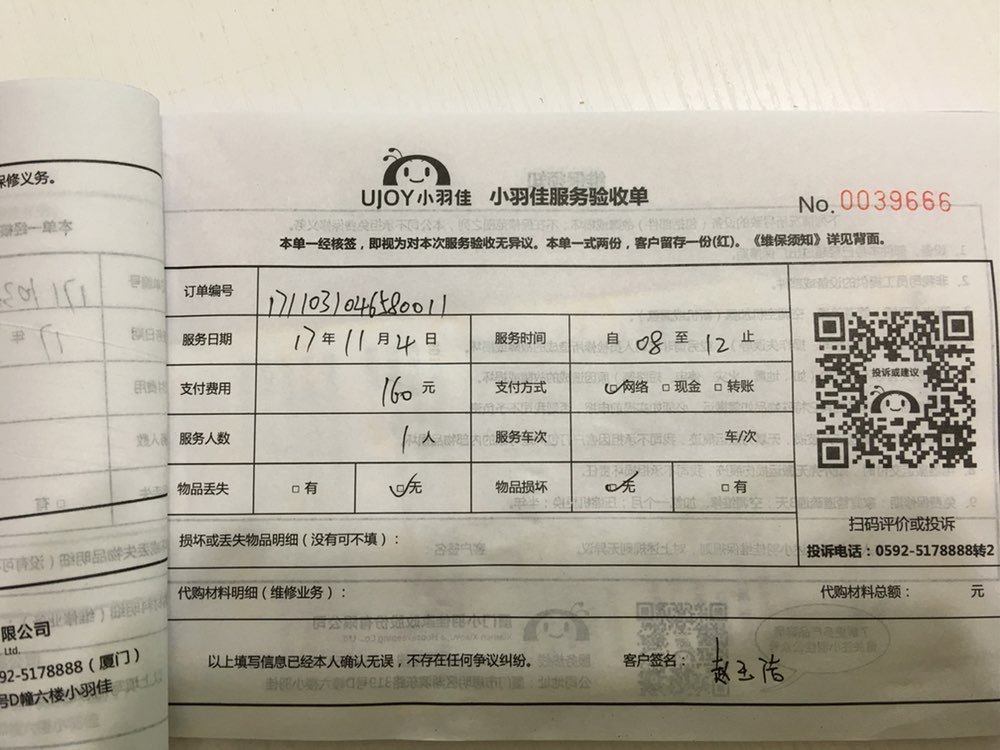 保修义务。
UJOY小羽佳 小羽佳服务验收单
No. 0039666
本单一经核签，即视为对本次服务验收无异议。本单一式两份，客户留存一份(红)。《维保须知》详见背面。
订单编号 1711031046580011
服务日期 17年11月4日 服务时间 自08至12止
支付费用 160元 支付方式 ☑网络 □现金 □转账
服务人数 1人 服务车次 车/次
物品丢失 □有 ☑无 物品损坏 ☑无 □有
投诉或建议
扫码评价或投诉
投诉电话：0592-5178888转2
损坏或丢失物品明细（没有可不填）：
代购材料明细（维修业务）： 代购材料总额： 元
以上填写信息已经本人确认无误，不存在任何争议纠纷。 客户签名：
限公司
Ltd.
92-5178888（厦门）
号D幢六楼小羽佳